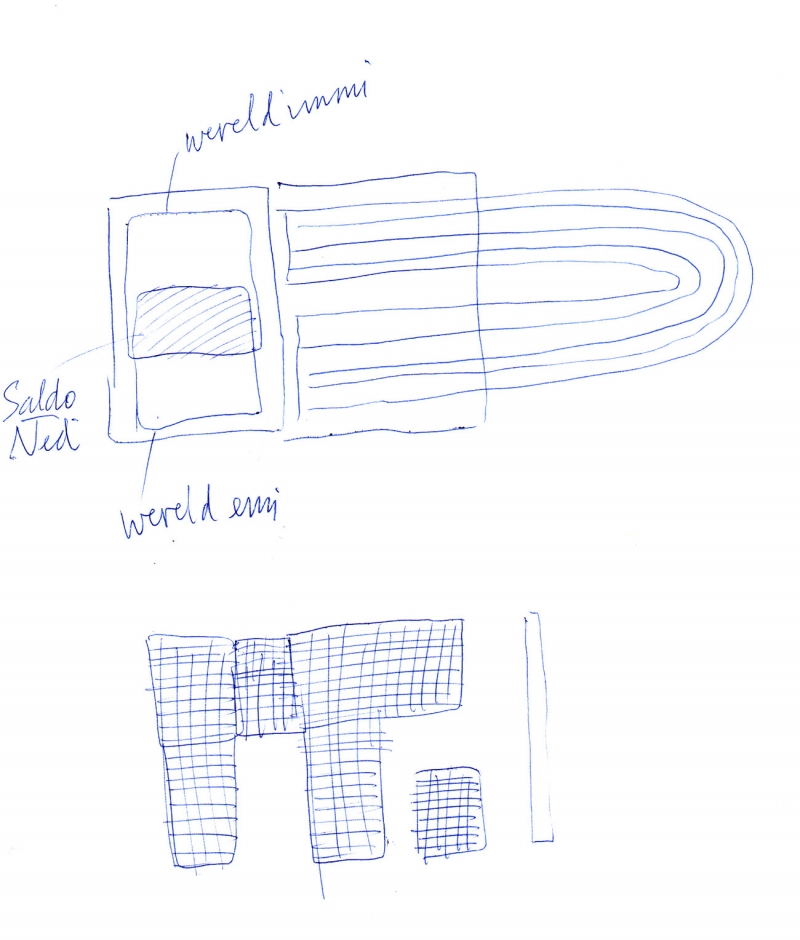 wereld immi
Saldo
Ned
wereld emi